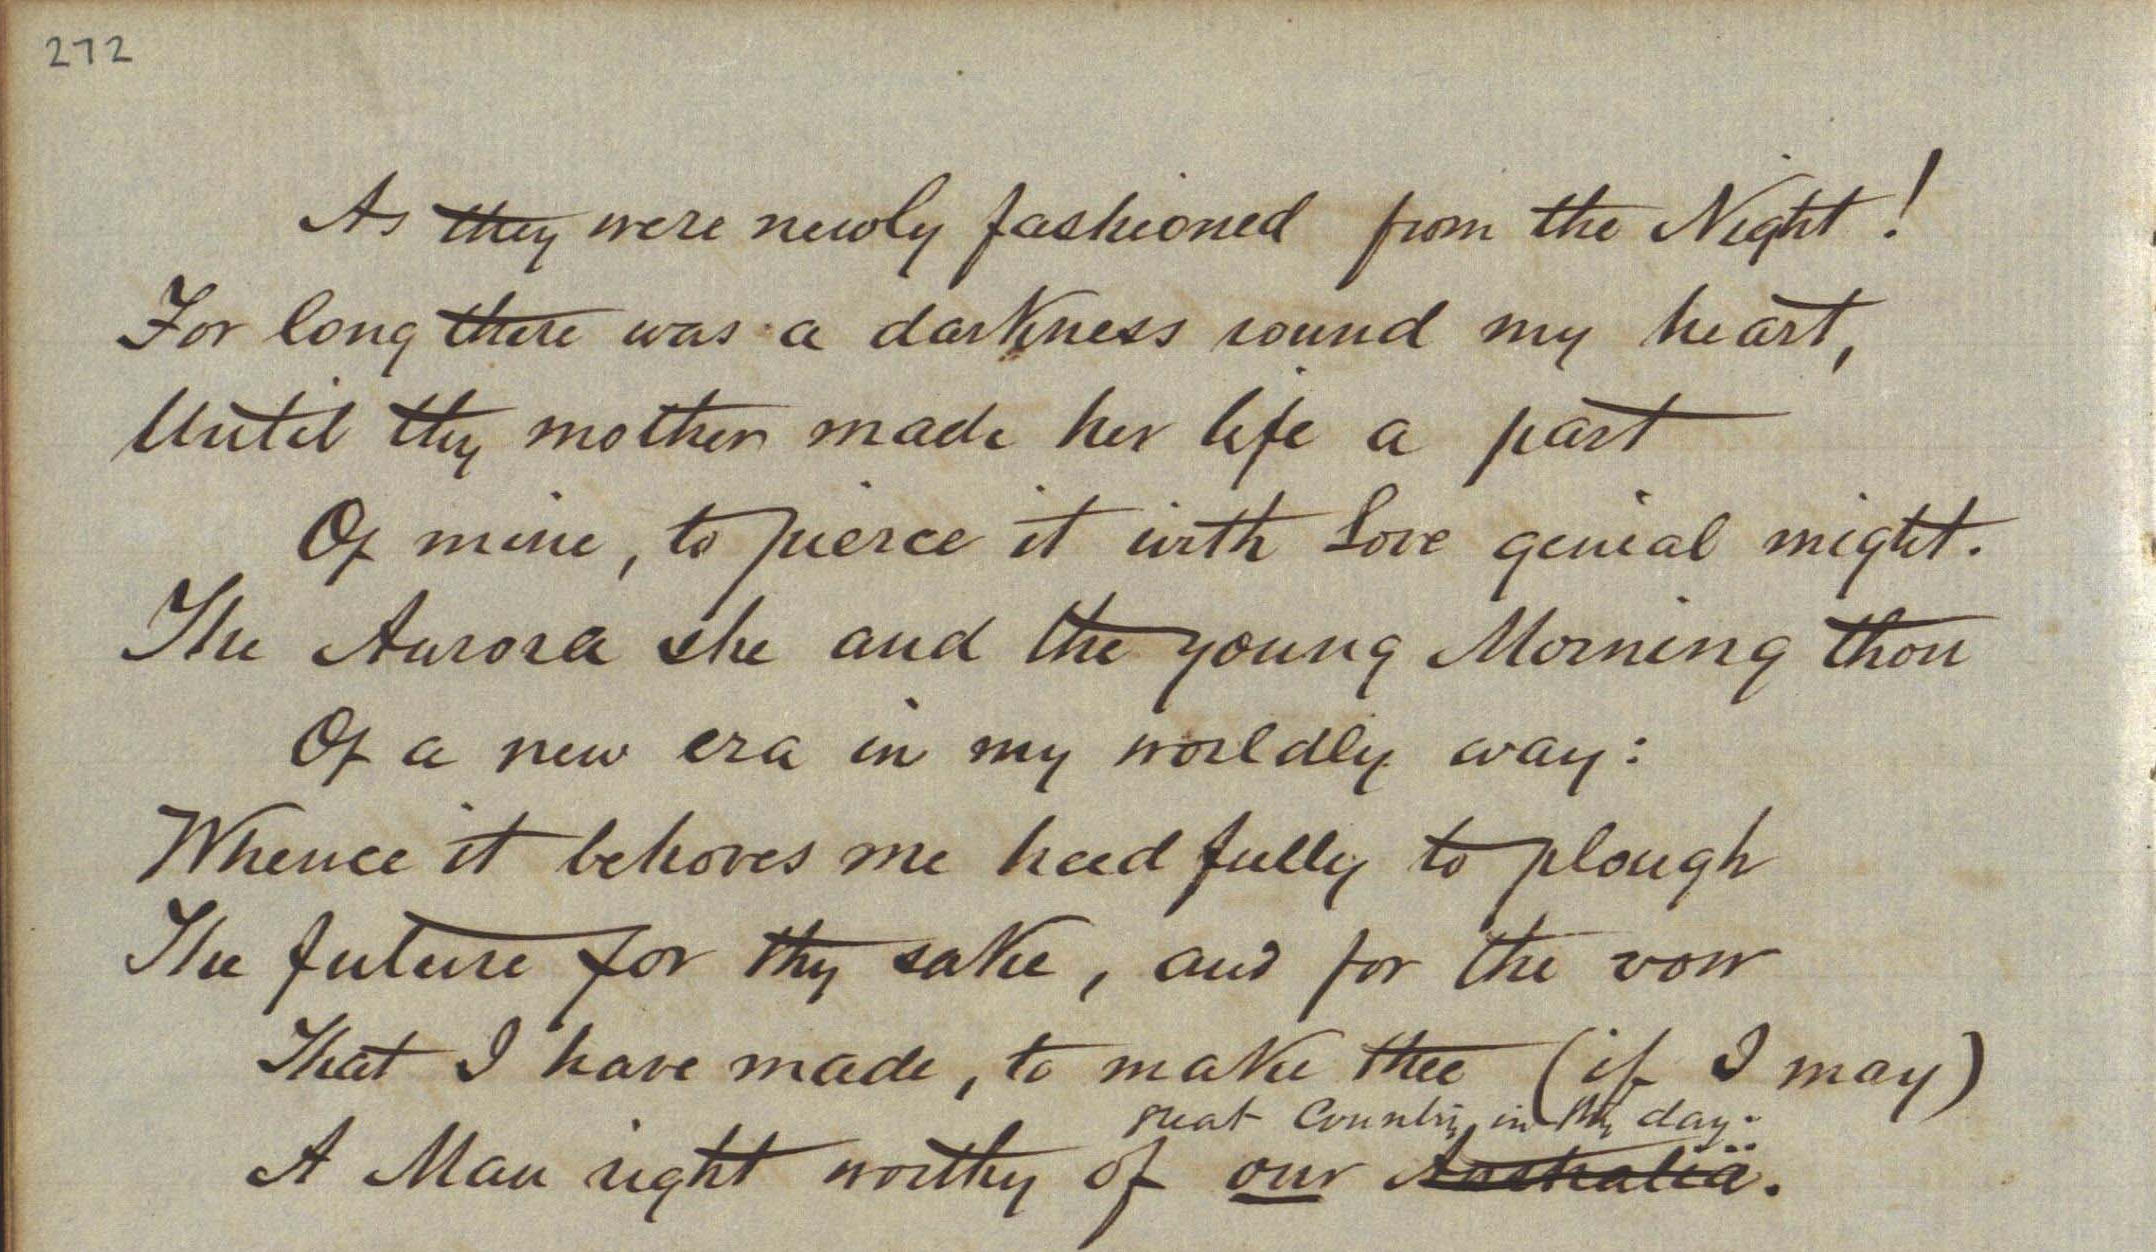 272
As they were newly fashioned from the Night!
For long there was a darkness round my heart,
Until thy mother made her life a part
Of mine, to pierce it with Love genial might.
The Aurora she and the young Morning thou
Of a new era in my worldly way:
Whence it behoves me heedfully to plough
The future for thy sake, and for the vow
That I have made, to make thee (if I may)
great Country in thy day.
A Man right worthy of our Australia.